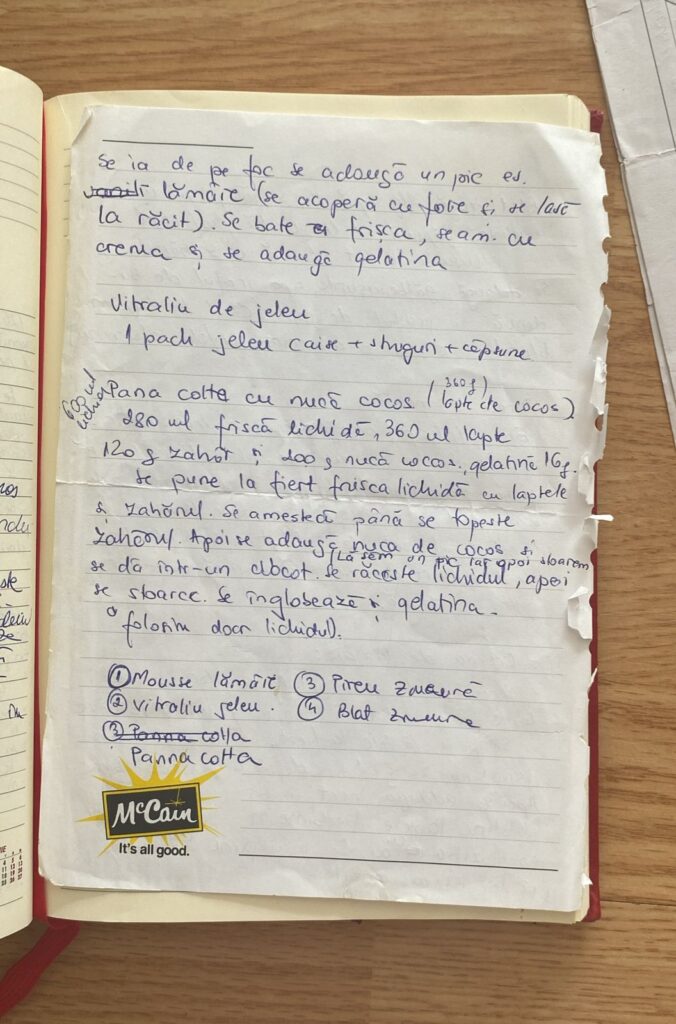 Se ia de pe foc se adaugă un pic es.
lămâie (se acoperă cu folie și se lasă
la răcit). Se bate frișca, se am. cu
crema și se adaugă gelatina
Vitraliu de jeleu
1 pach jeleu caise + struguri + căpșune
600 ml
lichid
Pana colta cu nucă cocos (360g lapte de cocos)
280 ml friscă lichidă, 360 ml lapte
120 g zahăr și 200 g nucă cocos, gelatină 16g.
se pune la fiert frisca lichidă cu laptele
și zahărul. Se amestecă până se topește
zahărul. Apoi se adaugă nuca de cocos și
Lăsăm un pic iar apoi stoarcem
se dă într-un clocot. Se răcește lichidul, apoi
se stoarce. Se înglobează și gelatina.
folosim doar lichidul).
① Mousse lămâie ③ Pireu zmeură
② Vitraliu jeleu. ④ Blat zmeura
③ Panna cotta
Panna cotta
McCain
It's all good.